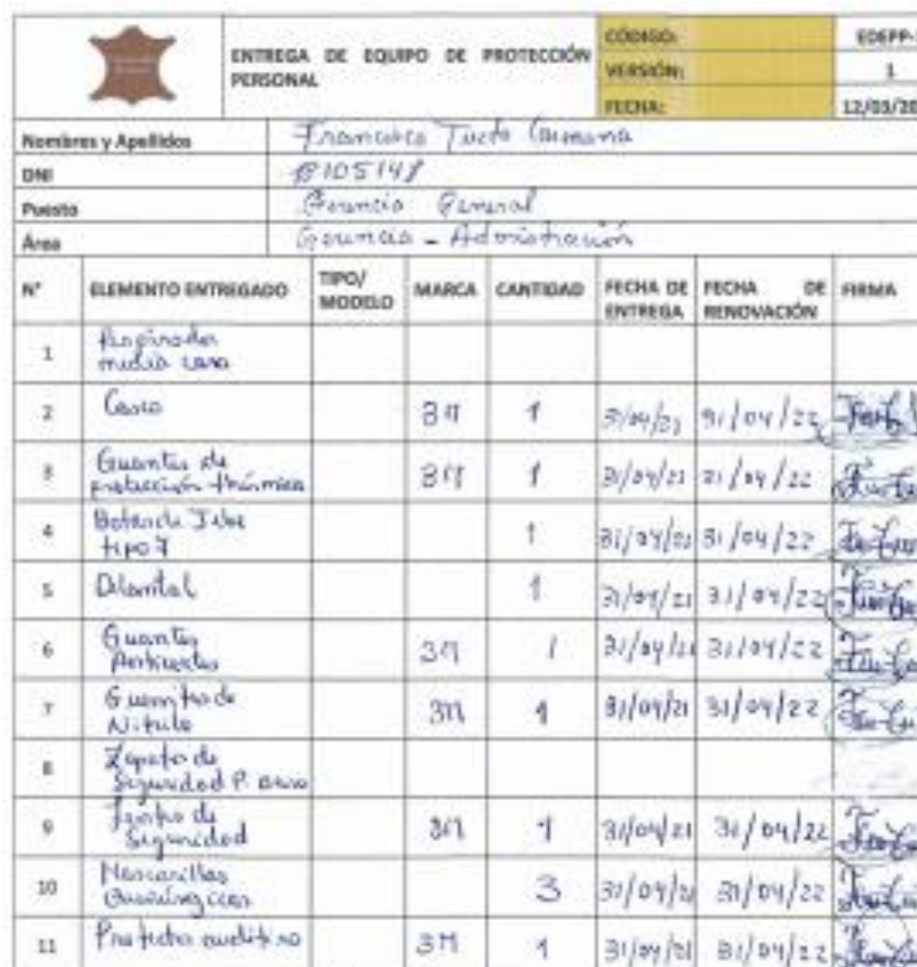 ENTREGA DE EQUIPO DE PROTECCIÓN
PERSONAL
CÓDIGO: EDEPP-
VERSIÓN: 1
FECHA: 12/03/20
Nombres y Apellidos Francisco
DNI
Puesto Gerencia General
Área Gerencia - Administración
N° ELEMENTO ENTREGADO TIPO/ MODELO MARCA CANTIDAD FECHA DE ENTREGA FECHA DE RENOVACIÓN FIRMA
1 Respirador
media cara
2 Casco 3M 1 31/04/21 31/04/22
3 Guantes de
protección térmica 3M 1 31/04/21 31/04/22
4 Botas de Jebe
tipo 7 1 31/04/21 31/04/22
5 Delantal 1 31/04/21 31/04/22
6 Guantes
Anticortes 3M 1 31/04/21 31/04/22
7 Guantes de
Nitrilo 3M 1 31/04/21 31/04/22
8 Zapato de
Seguridad P.
9 Lentes de
Seguridad 3M 1 31/04/21 31/04/22
10 Mascarillas
Quirúrgicas 3 31/04/21 31/04/22
11 Protector auditivo 3M 1 31/04/21 31/04/22